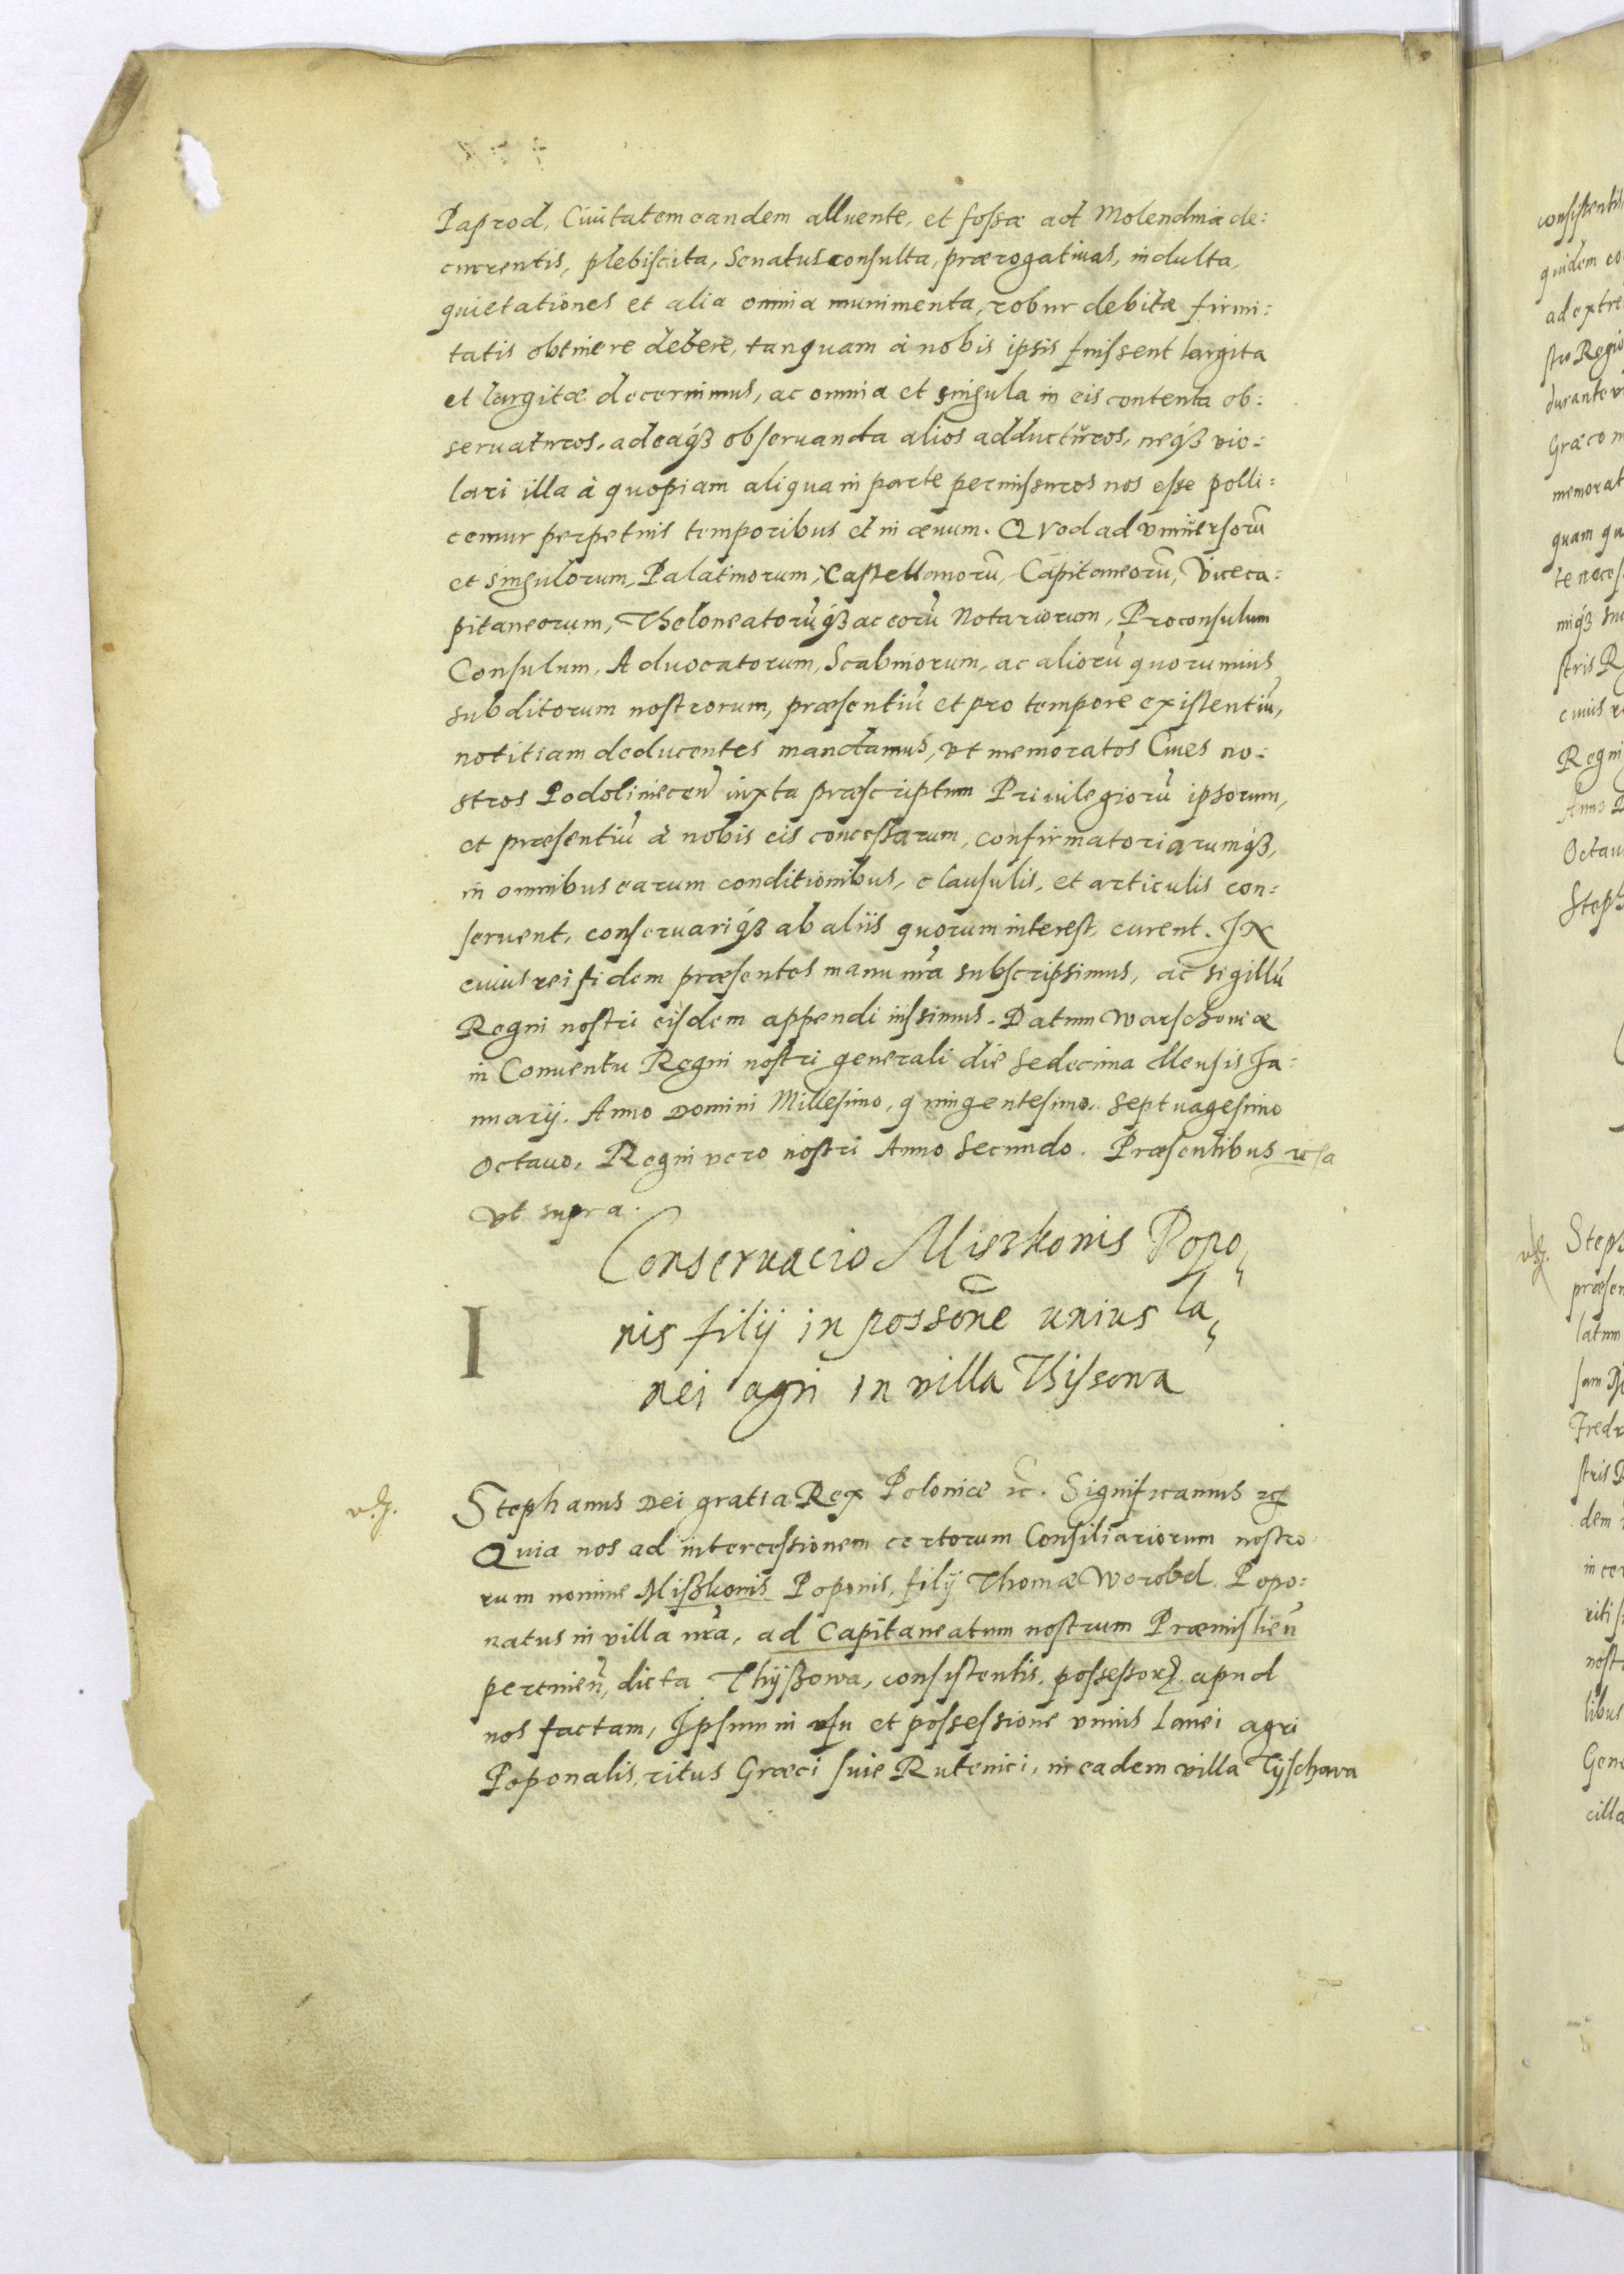 Paprod, Ciuitatem eandem alluente, et fossæ ad Molendina de:
currentis, plebiscita, Senatus consulta, prærogatiuas, indulta,
quietationes et alia omnia munimenta, robur debitæ firmi:
tatis obtinere debere, tanquam à nobis ipsis fuissent largita
et largitæ decernimus, ac omnia et singula in eis contenta ob:
seruaturos, adeaq́ꝫ obseruanda alios adducturos, neq́ꝫ vio:
lari illa à quopiam aliqua in parte permissuros nos esse polli:
cemur perpetuis temporibus et in æuum. Quod ad vniuersorũ
et singulorum, Palatinorum, Castellanorũ, Capitaneorũ, Viceca:
pitaneorum, Theloneatorũq́ꝫ ac eorũ Notariorum, Proconsulum
Consulum, Aduocatorum, Scabinorum, ac aliorũ quorumuis
subditorum nostrorum, præsentiũ et pro tempore existentiũ,
notitiam deducentes mandamus, vt memoratos Ciues no:
stros Podoliniecen̄ iuxta præscriptum Priuilegiorũ ipsorum,
et præsentiũ à nobis eis concessarum, confirmatoriarumq́ꝫ,
in omnibus earum conditionibus, clausulis, et articulis con:
seruent, conseruariq́ꝫ ab aliis quorum interest, curent. IN
cuius rei fidem præsentes manu nr̃a subscripsimus, ac sigillũ
Regni nostri eisdem appendi iussimus. Datum Warschouiæ
in Conuentu Regni nostri generali die Sedecima Mensis Ja:
nuarij. Anno Domini Millesimo, quingentesimo, Septuagesimo
Octauo, Regni vero nostri Anno Secundo. Præsentibus
vt supra.
Conseruacio Miszkonis Popo
nis filij in possõne unius la
nei agri in villa Thissowa
I
Stephanus Dei gratia Rex Poloniæ ꝛc̃. Significamus ꝛc̃
Quia nos ad intercessionem certorum Consiliariorum nostro
rum nomine Mißkonis Poponis, filij Thomæ Worobel, Popo:
natus in villa nr̃a, ad Capitaneatum nostrum Præmislien̄
pertinen̄, dicta Thyßowa, consistentis, possessorꝫ. apud
nos factam, Ipsum in vsu et possessione vnius Lanei agri
Poponalis, ritus Græci siue Rutenici, in eadem villa Tyschowa